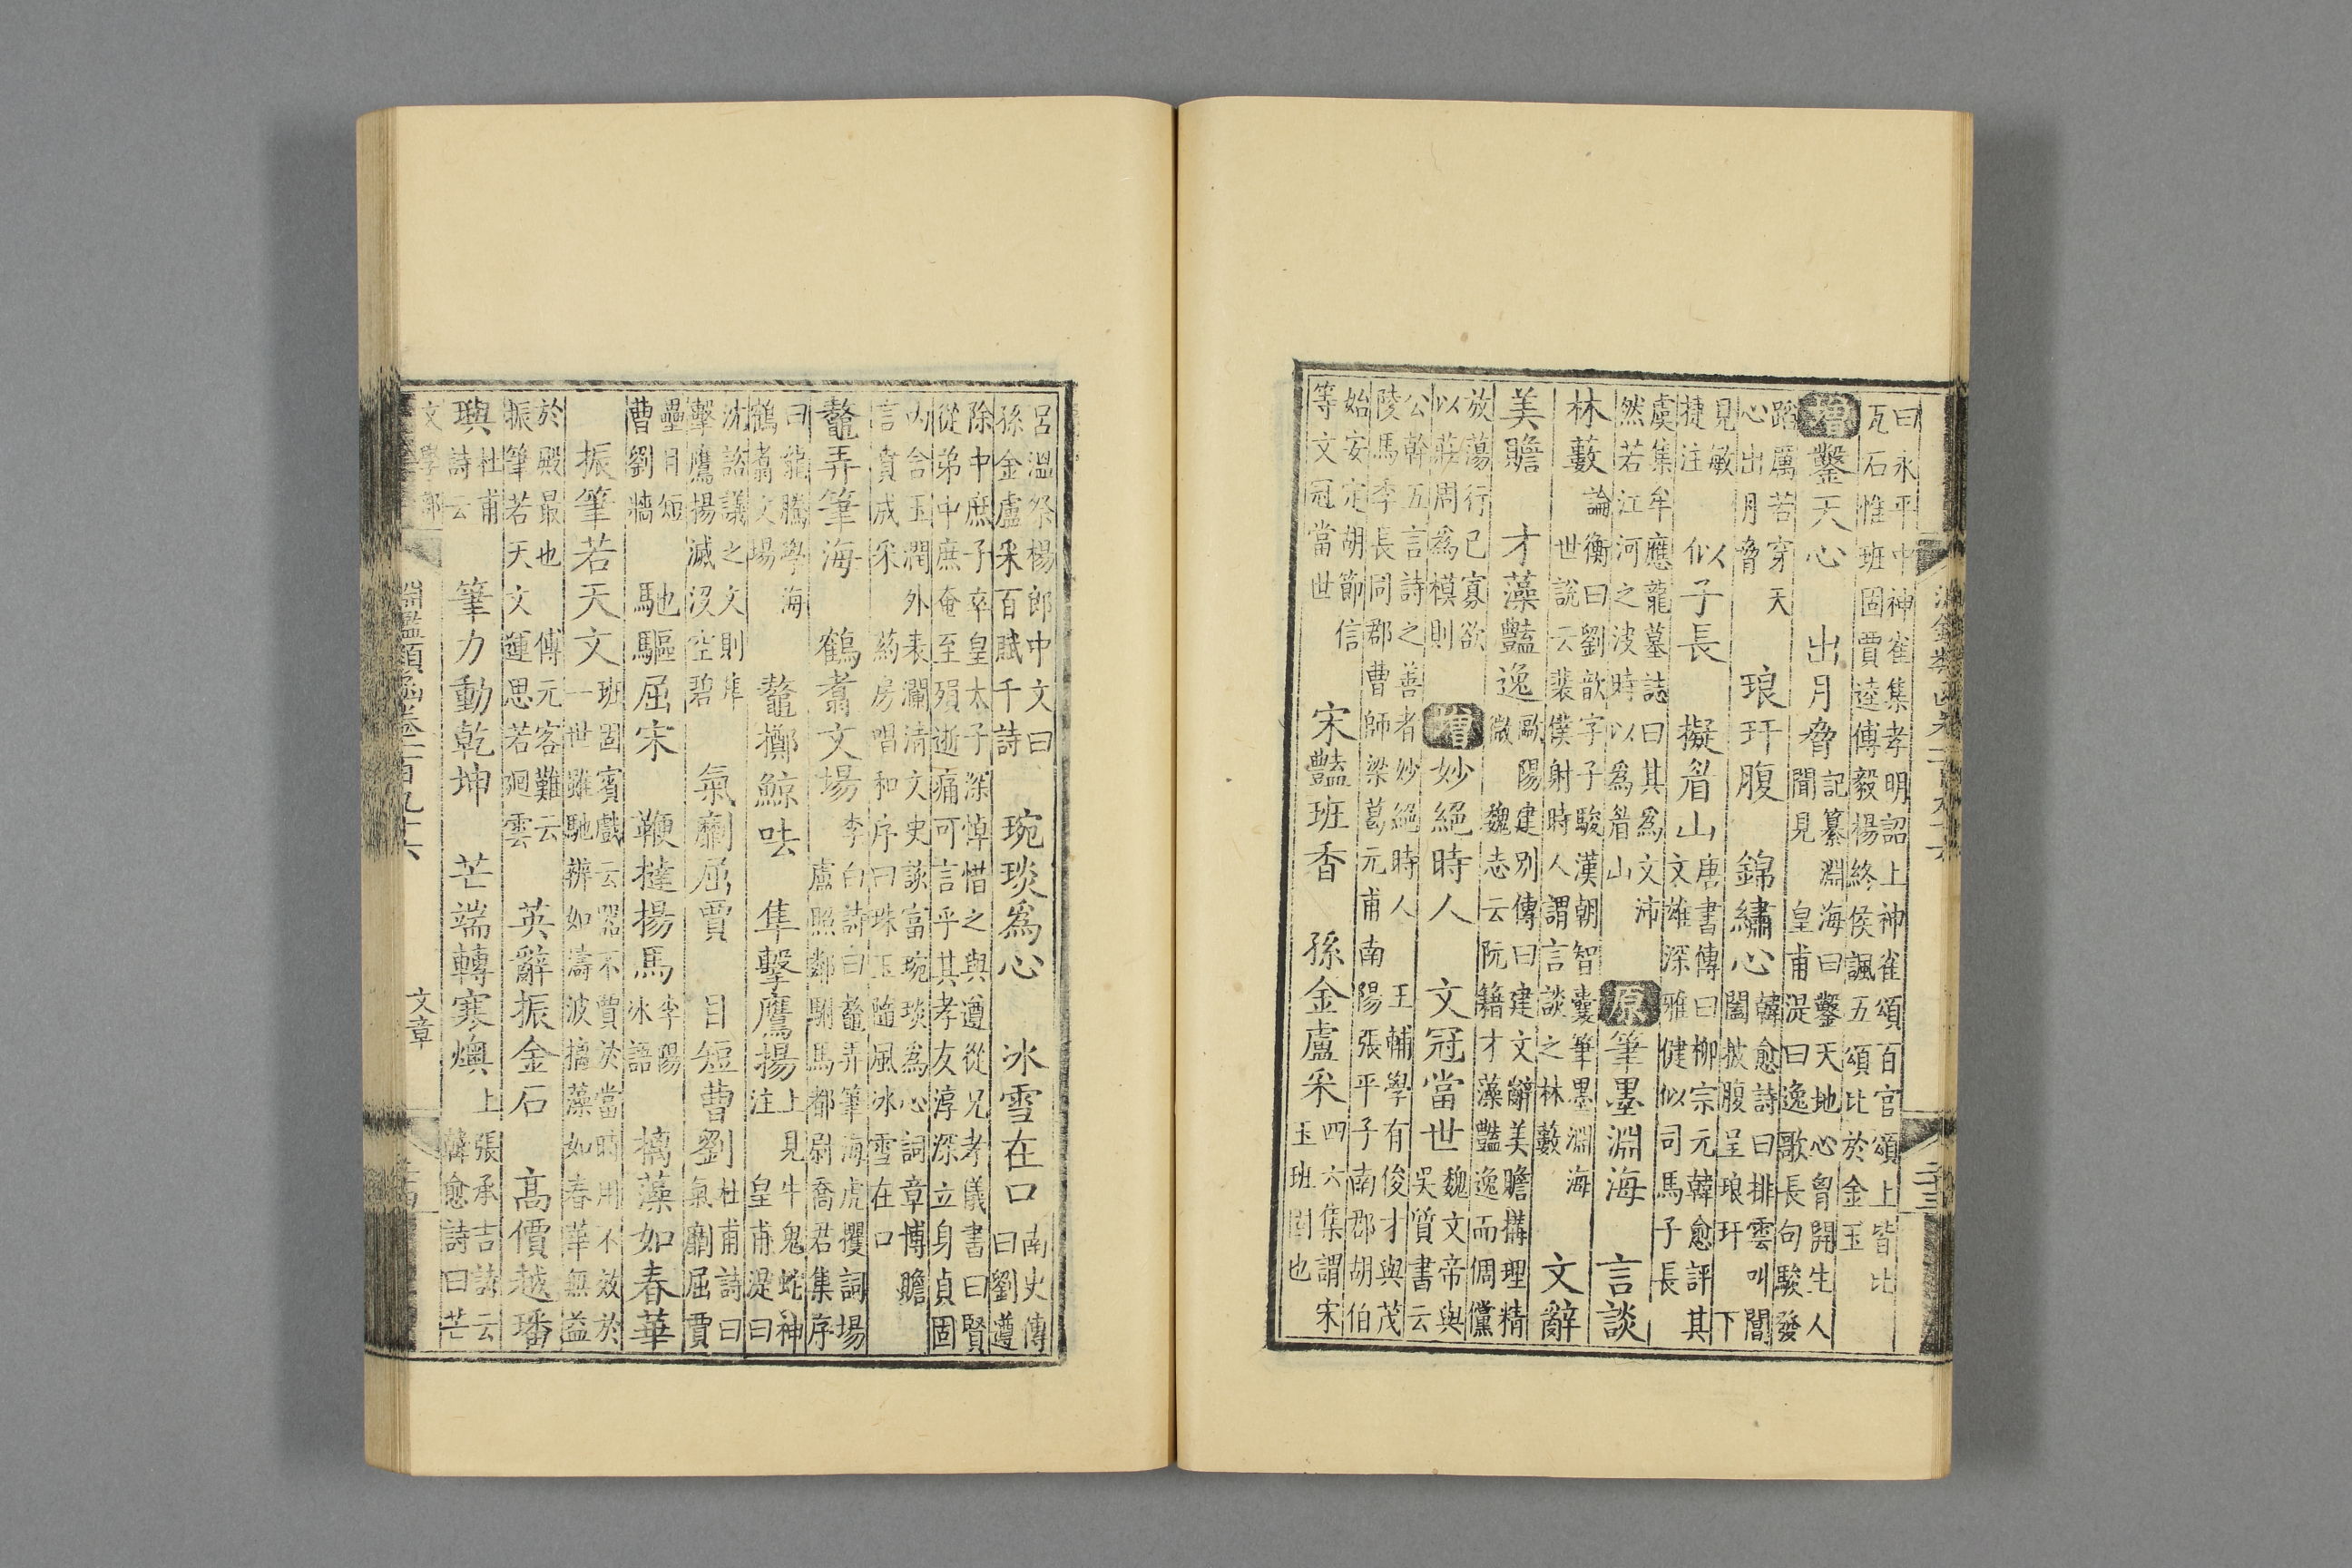 曰永平中神雀集孝明詔上神雀頌百官頌上皆比
瓦石惟班固賈逵傅毅楊終侯諷五頌比於金玉
增鑿天心
出月脅
記纂淵海曰鑿天地心胷開生人
聞見皇甫湜曰逸歌長句駿發
踏厲若穿天
心出月脅
琅玕腹
錦繡心
韓愈詩曰排雲叫閶
闔披腹呈琅玕下
見敏
捷注
似子長
擬眉山
唐書傳曰柳宗元韓愈評其
文雄深雅健似司馬子長
虞集牟應龍墓誌曰其爲文沛
然若江河之波時以爲眉山
原筆墨淵海
言談
林藪
論衡曰劉歆字子駿漢朝智囊筆墨淵海
世說云裴僕射時人謂言談之林藪
文辭
美贍
才藻豔逸
歐陽建別傳曰建文辭美贍搆理精
微魏志云阮籍才藻豔逸而倜儻
放蕩行已寡欲
以莊周爲模則
增妙絕時人
文冠當世
魏文帝與
吳質書云
公幹五言詩之善者妙絕時人王輔學有俊才與茂
陵馬季長同郡曹師梁葛元甫南陽張平子南郡胡伯
始安定胡節信
等文冠當世
宋豔班香
孫金盧采
四六集謂宋
玉班固也
呂溫祭楊郎中文曰
孫金盧采百賦千詩
琬琰爲心
冰雪在口
南史傳
曰劉遵
除中庶子卒皇太子深悼惜之與遵從兄孝儀書曰賢
從弟中庶奄至殞逝痛可言乎其孝友淳深立身貞固
內含玉潤外表瀾清文史談富琬琰爲心詞章博贍
言賁成采
葯房唱和序曰珠玉隨風冰雪在口
鼇弄筆海
鶴翥文場
李白詩曰鼇弄筆海虎攫詞場
盧照鄰駙馬都尉喬君集序
曰龍騰學海
鶴翥文場
鼇擲鯨呿
隼擊鷹揚
上見牛鬼蛇神
注皇甫湜曰
沈諮議之文則隼
擊鷹揚滅沒空碧
氣劘屈賈
目短曹劉
杜甫詩曰
氣劘屈賈
壘目短
曹劉牆
馳驅屈宋
鞭撻揚馬
李陽
冰語
摛藻如春華
振筆若天文
班固賓戲云器不賈於當時用不效於
一世雖馳辨如濤波摛藻如春華無益
於殿最也
傅元客難云
振筆若天文運思若迴雲
英辭振金石
高價越璠
璵
杜甫
詩云
筆力動乾坤
芒端轉寒燠
上張承吉詩云
韓愈詩曰芒
淵鑑類函卷二百九十六
文章